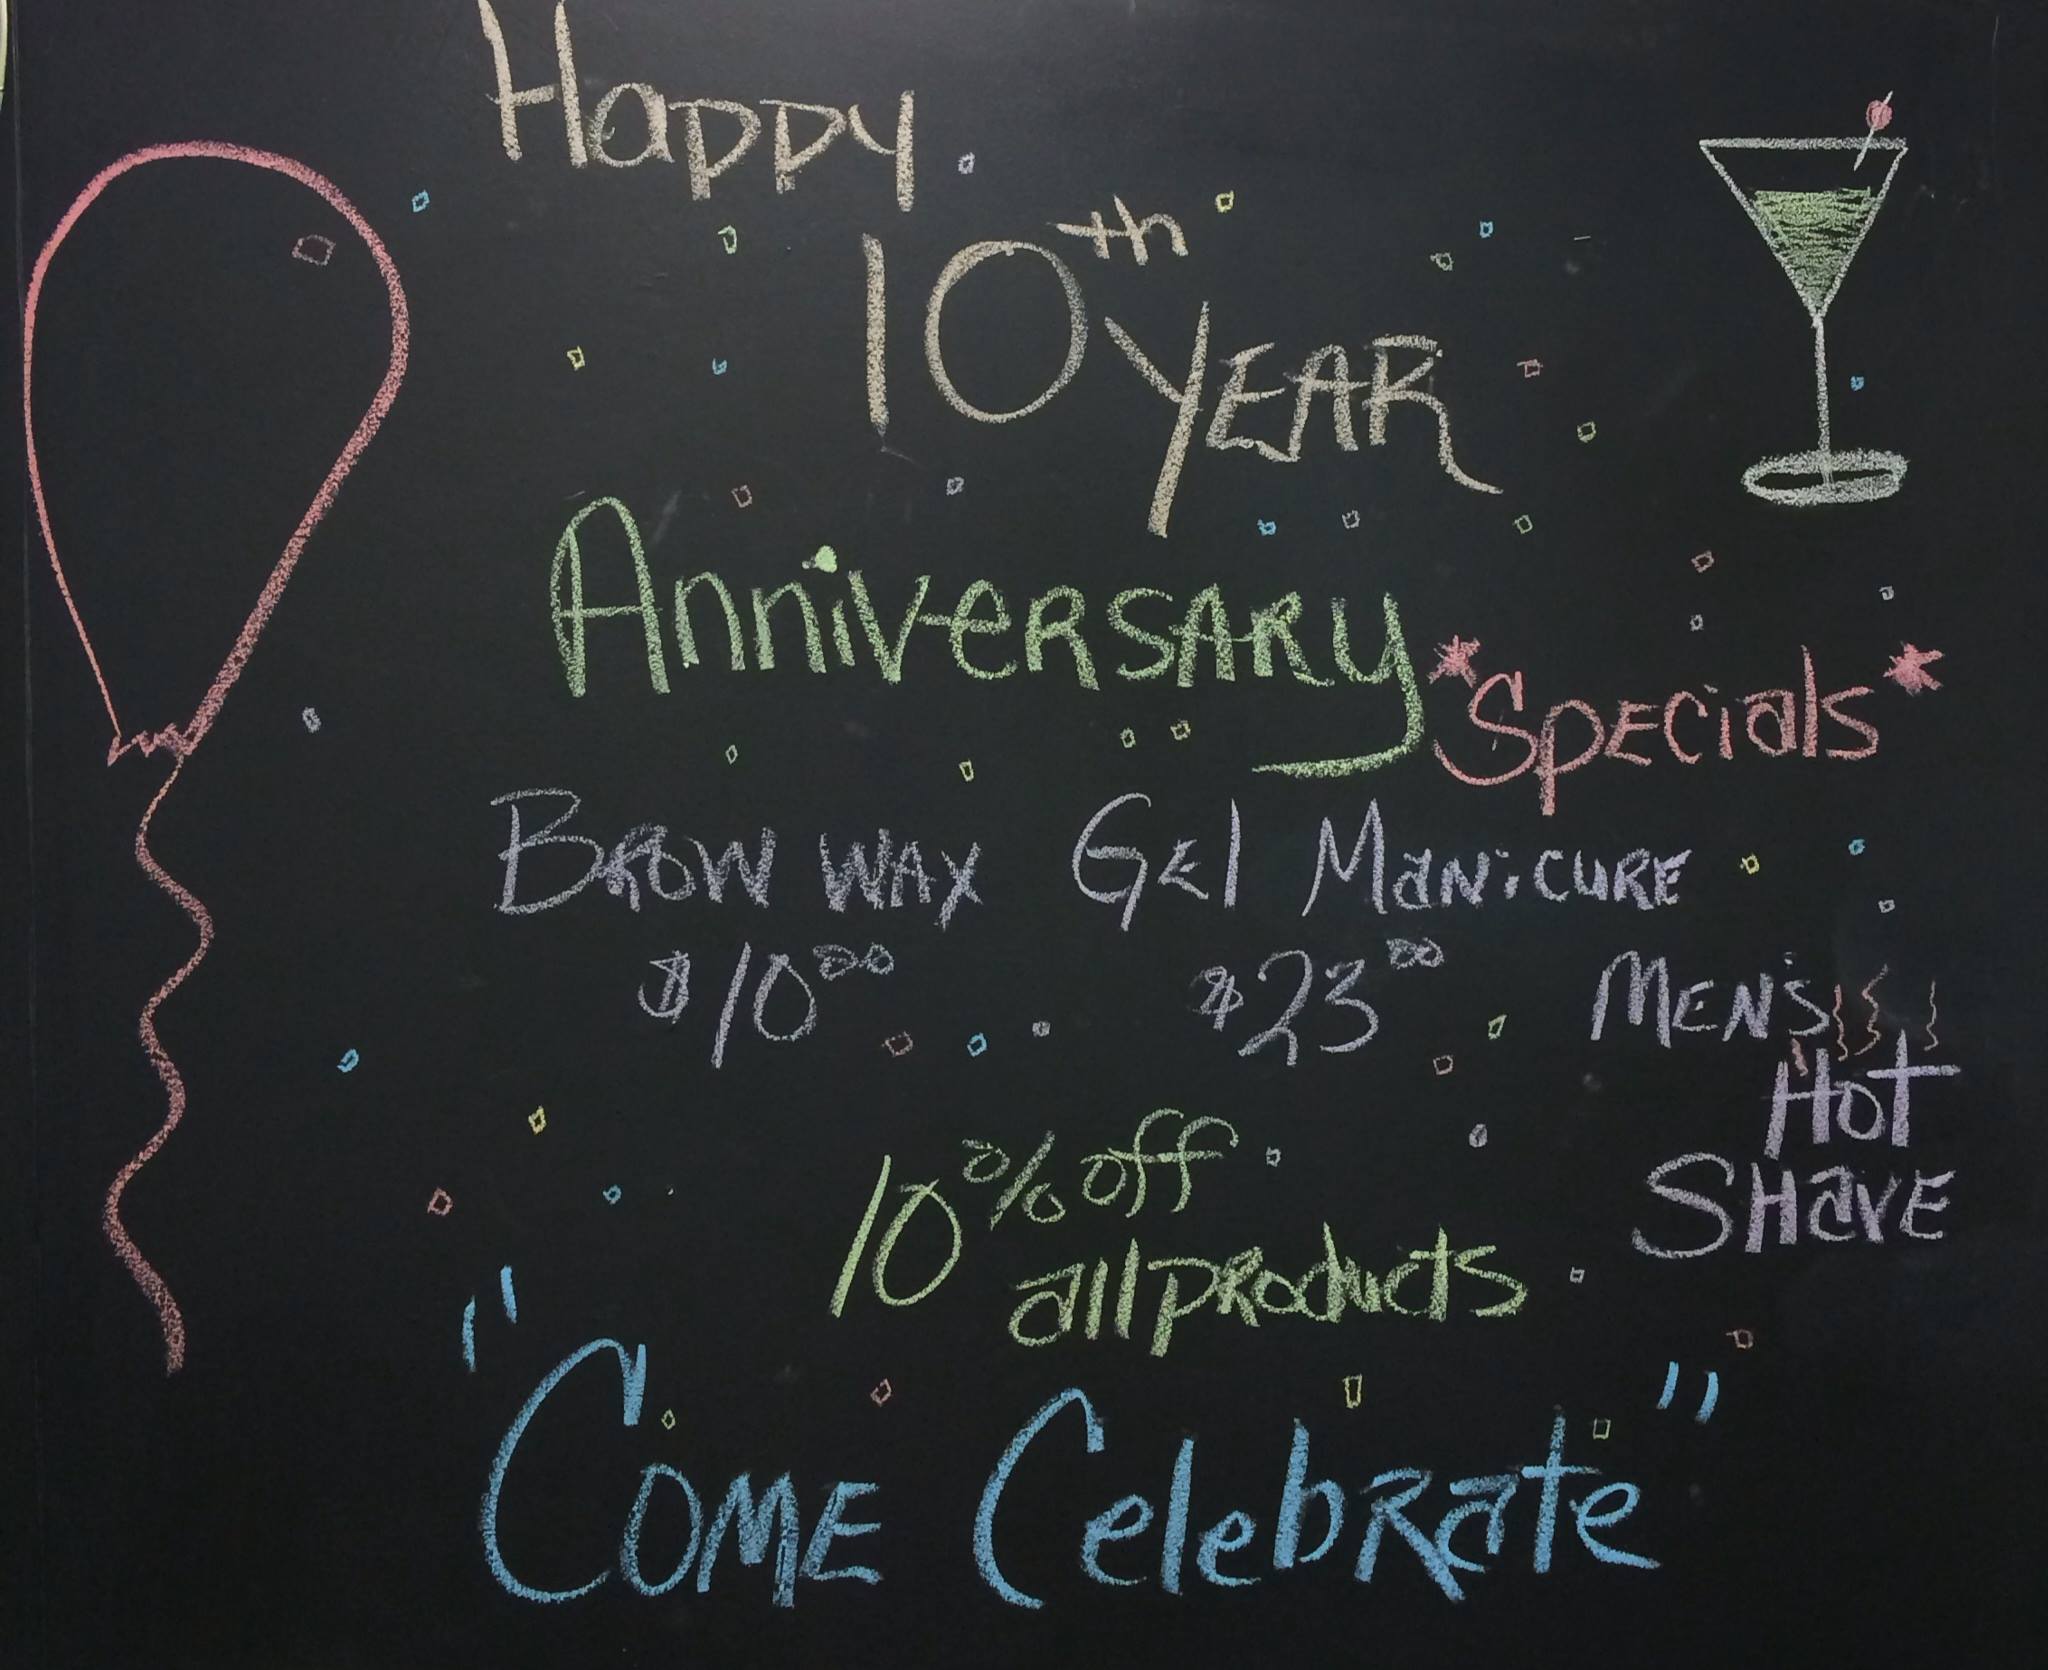 Happy
10th YEAR
Anniversary
*Specials*
Brow wax
$10.00
Gel Manicure
$23.00
Men's
Hot
Shave
10% off
all products
"Come Celebrate"